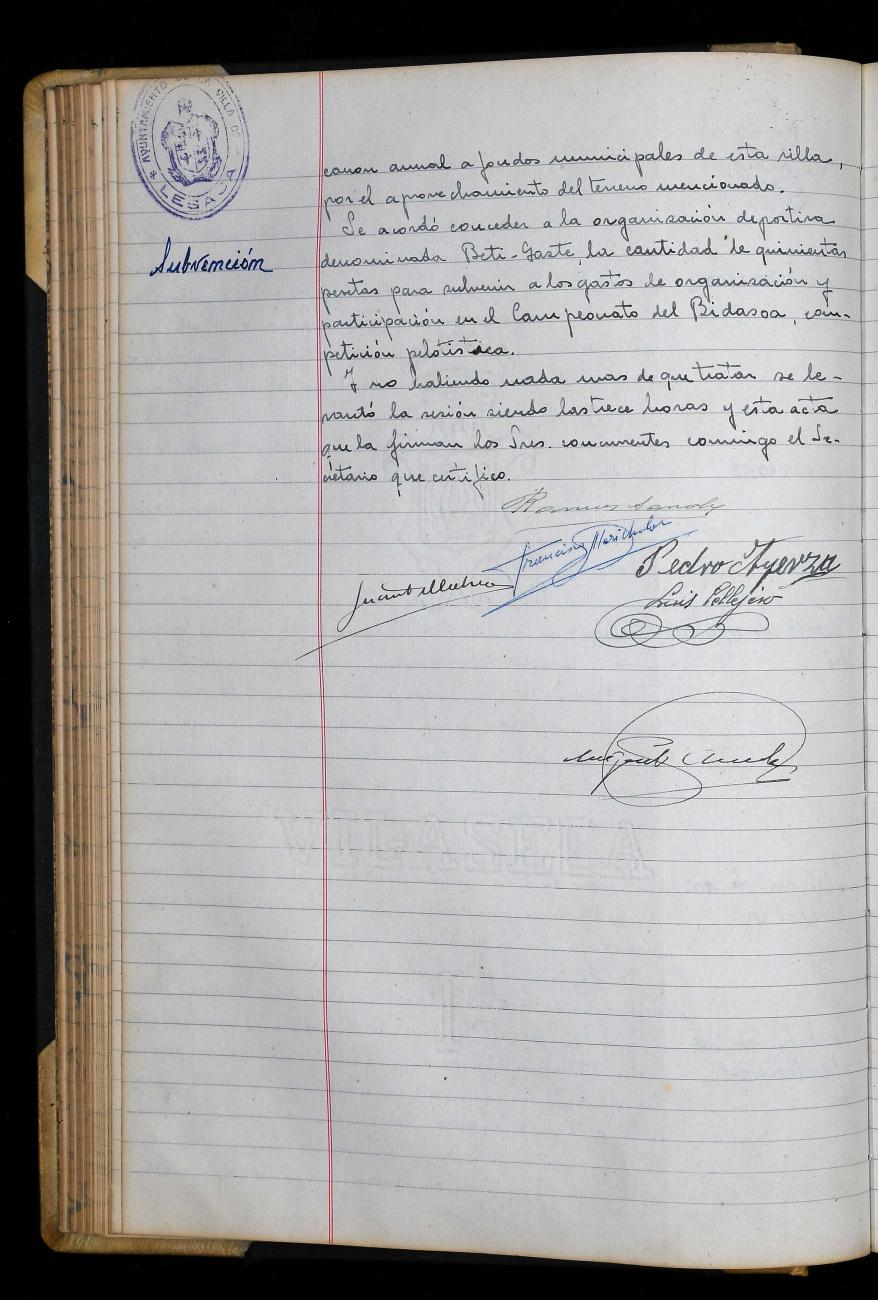 AYUNTAMIENTO DE LA VILLA DE
* LESACA
canon annual a fondos municipales de esta villa,
por el aprovechamiento del terreno mencionado.
Se acordó conceder a la organización deportiva
Subvención
denominada Beti-Gazte, la cantidad de quinientas
pesetas para subvenir a los gastos de organización y
participación en el Campeonato del Bidasoa, com-
petición pelotística.
Y no habiendo nada mas de que tratar se le-
vantó la sesión siendo las trece horas y esta acta
que la firman los Sres. concurrentes conmigo el Se-
cretario que certifico.
Francisco Marichular
Pedro Ayerza
Luis Pellejero